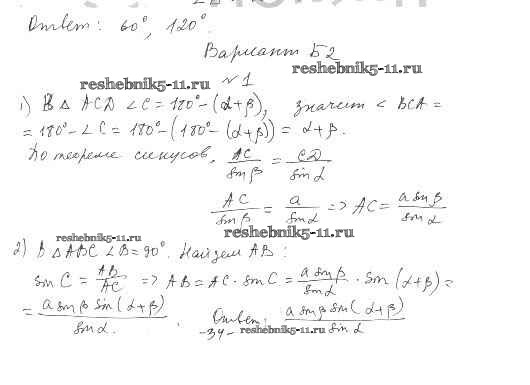 Ответ: 60°, 120°.
Вариант Б2
reshebnik5-11.ru
reshebnik5-11.ru
№1
1) В △ ACD ∠C = 180° - (α+β), значит ∠ BCA =
= 180° - ∠C = 180° - (180° - (α+β)) = α+β.
По теореме синусов, AC/sin β = CD/sin α
AC/sin β = a/sin α => AC = a sin β/sin α
reshebnik5-11.ru
reshebnik5-11.ru
2) В △ ABC ∠B = 90°. Найдем AB:
sin C = AB/AC => AB = AC · sin C = a sin β/sin α · sin (α+β) =
= a sin β sin (α+β)/sin α.
Ответ: a sin β sin (α+β)/sin α
-34- reshebnik5-11.ru